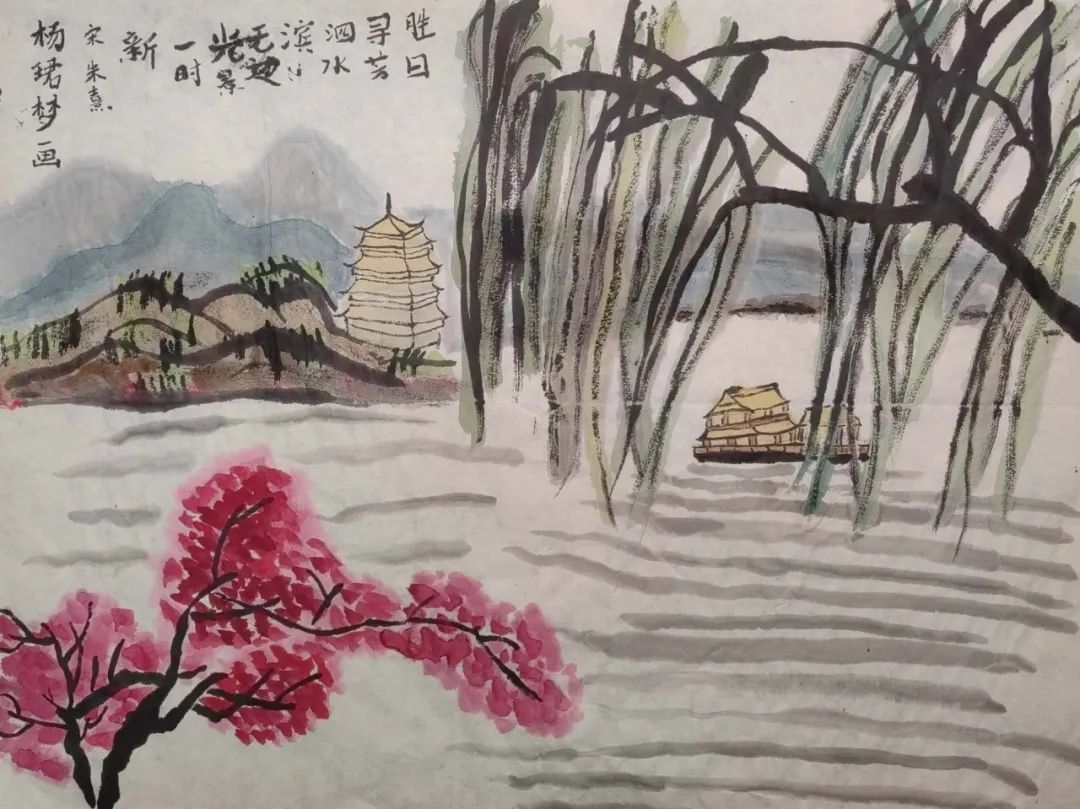 胜日
寻芳
泗水
滨
无边
光景
一时
新
宋朱熹
杨珺梦画